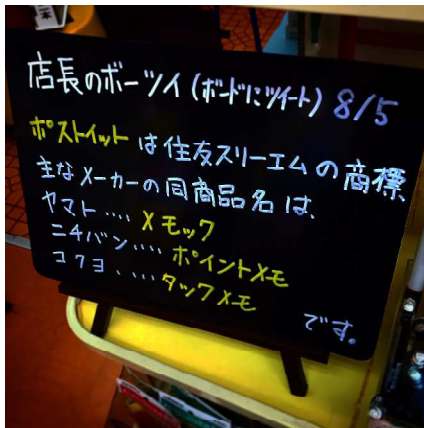 店長のボーツイ(ボードにツイート) 8/5
ポストイットは住友スリーエムの商標
主なメーカーの同商品名は、
ヤマト‥‥メモック
ニチバン‥‥ポイントメモ
コクヨ、‥‥タックメモ
です。